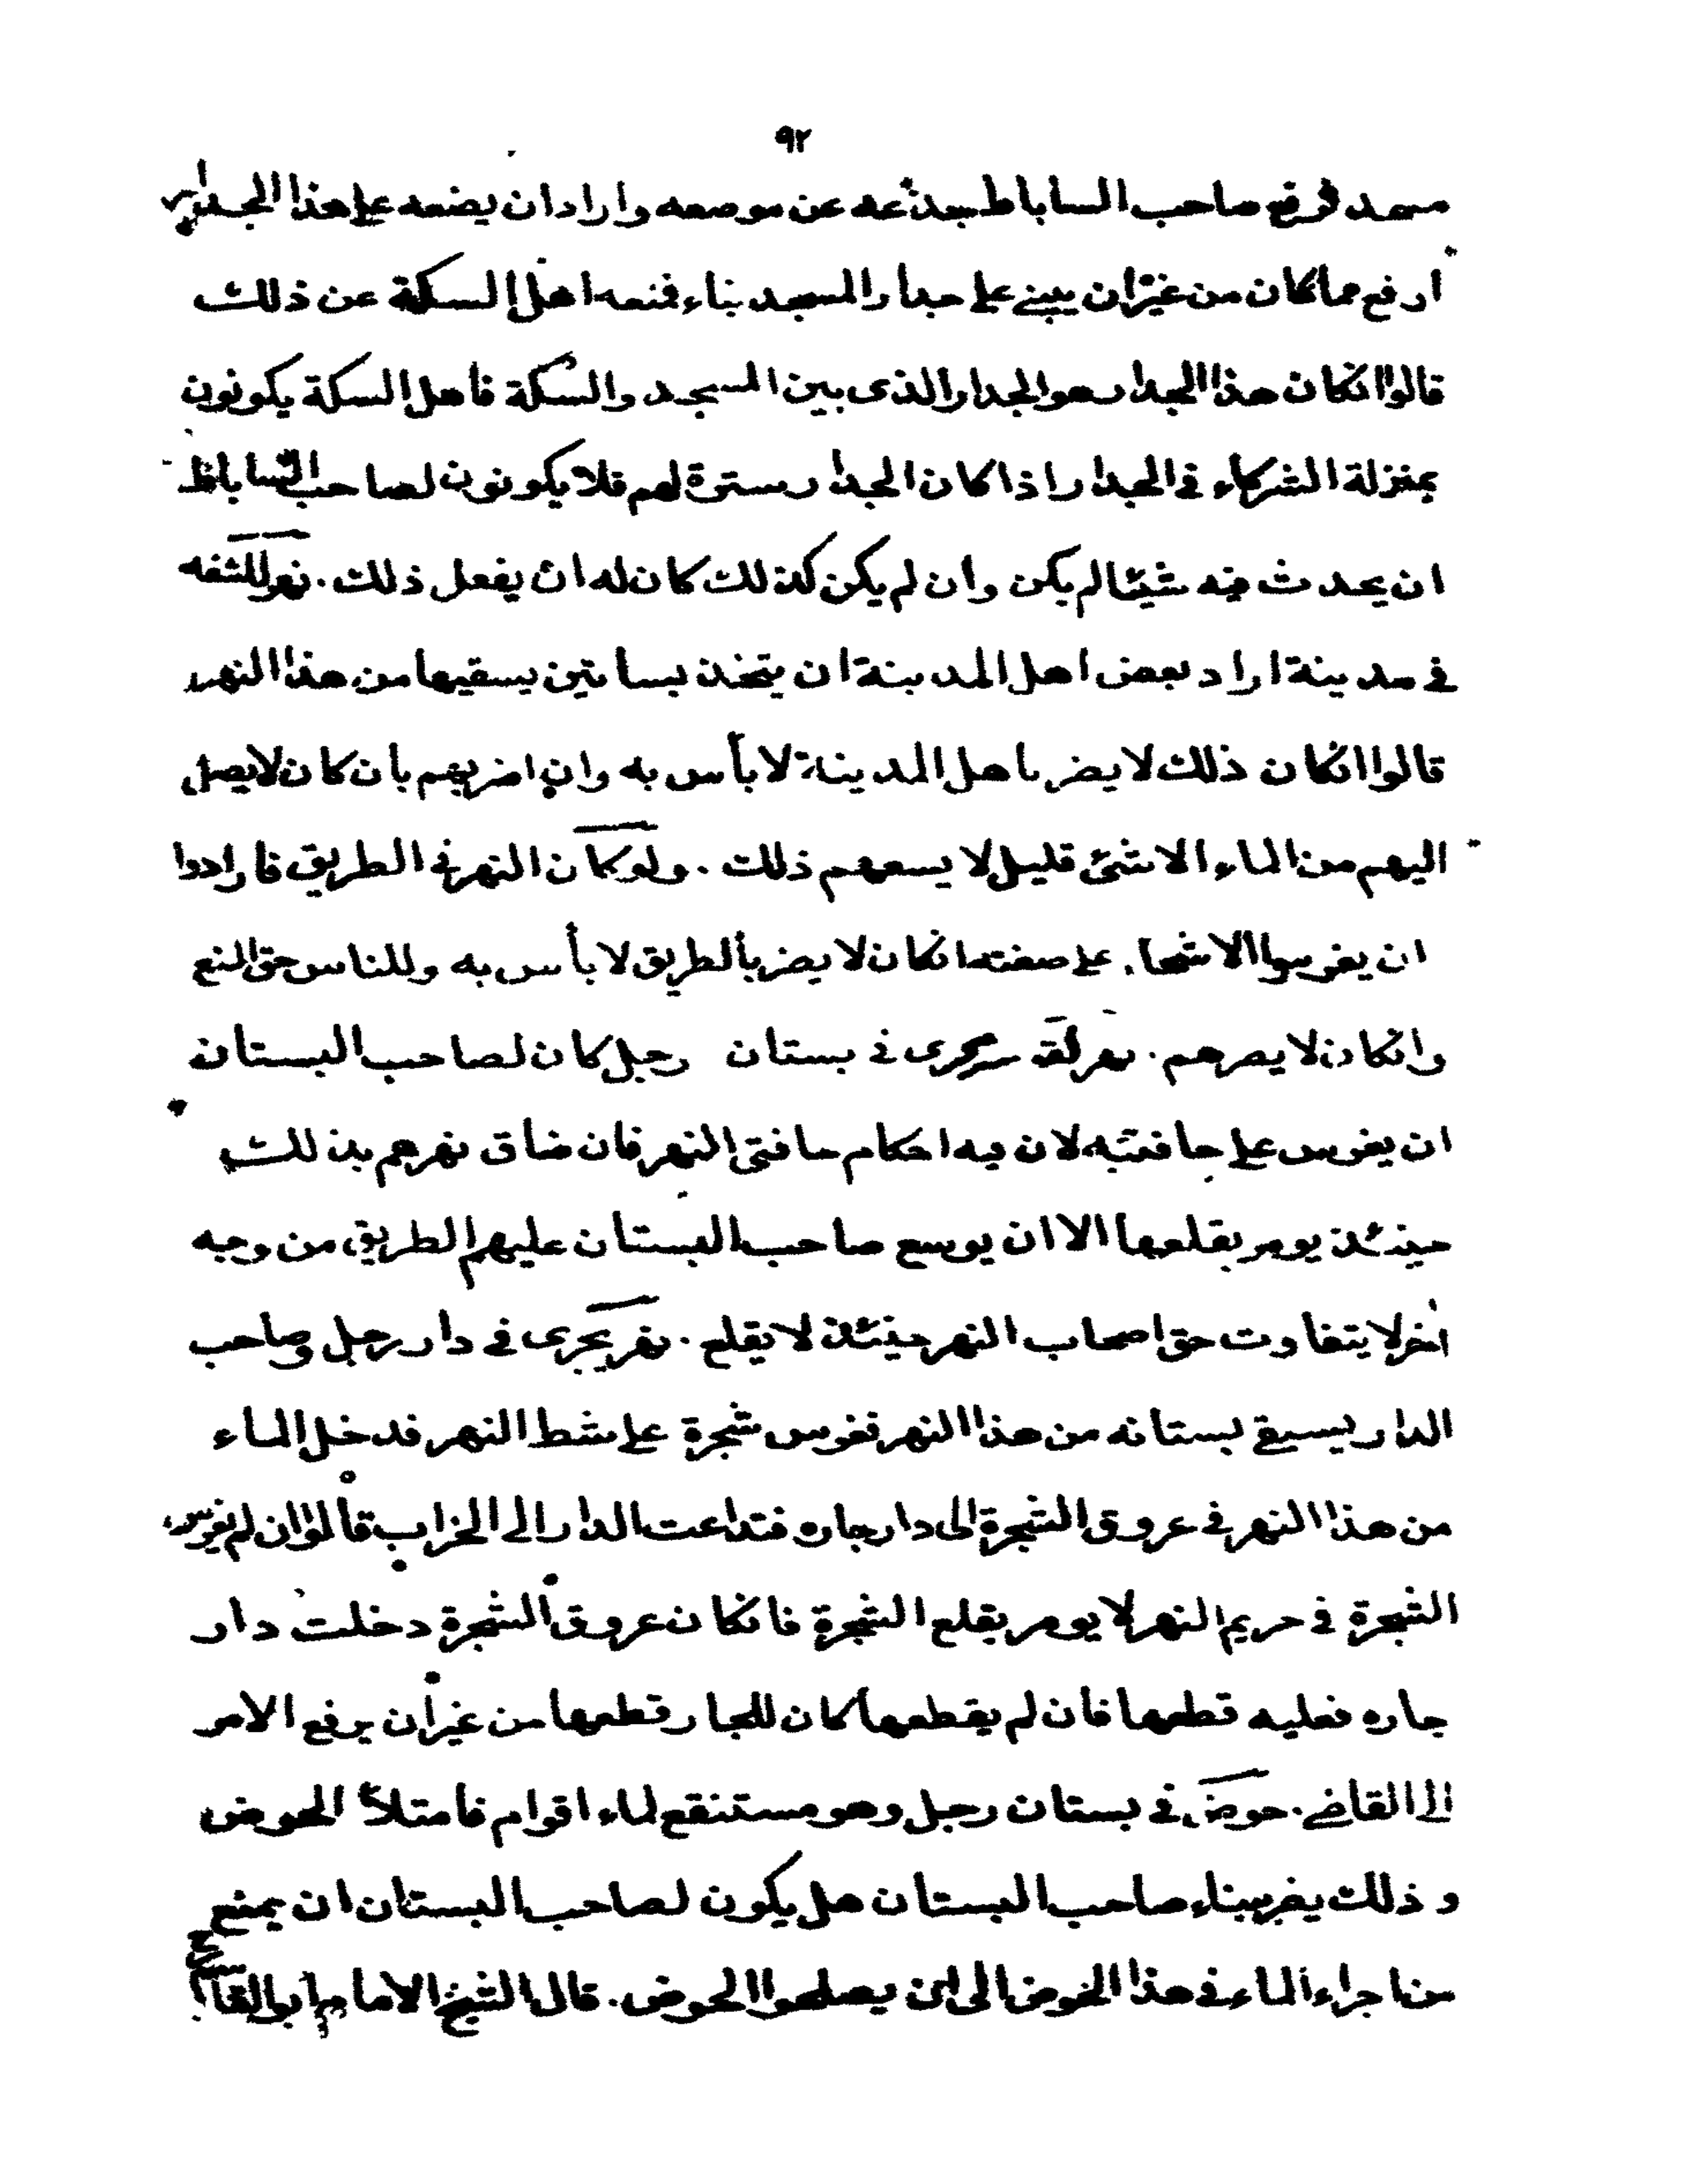 ٩٢
مسجد فرفع صاحب الساباط جذعه عن موضعه واراد ان يضعه على هذا الجدار
ارفع مما كان من غير ان يبني على جدار المسجد بناء فمنعه اهل السكة عن ذلك
قالوا انكان هذا الجدار هو الجدار الذى بين المسجد والسكة فأهل السكة يكونون
بمنزلة الشركاء في الجدار اذا كان الجدار سترة لهم فلا يكونون لصاحب الساباط
ان يحدث فيه شيئا لم يكن وان لم يكن كذلك كان له ان يفعل ذلك . نهر للشفه
في مدينة اراد بعض اهل المدينة ان يتخذ بساتين يسقيها من هذا النهر
قالوا انكان ذلك لا يضر باهل المدينة لا بأس به وان اضر بهم بأن كان لا يصل
اليهم من الماء الا شئ قليل لا يسعهم ذلك . ولو كان النهر في الطريق فارادوا
ان يغرسوا الاشجار على ضفته انكان لا يضر بالطريق لا بأس به وللناس حق المنع
وانكان لا يضرهم . نهر لقوم يجرى في بستان رجل كان لصاحب البستان
ان يغرس على حافتيه لان فيه احكام حافتى النهر فان ضاق نهرهم بذلك
حينئذ يومر بقلعها الا ان يوسع صاحب البستان عليهم الطريق من وجه
اخر لا يتفاوت حق اصحاب النهر حينئذ لا يقلع . نهر يجرى في دار رجل وصاحب
الدار يسقي بستانه من هذا النهر فغرس شجرة على شط النهر فدخل الماء
من هذا النهر في عروق الشجرة الى دار جاره فتداعت الدار الى الخراب قالوا ان لم يغرس
الشجرة في حريم النهر لا يومر بقلع الشجرة فانكان عروق الشجرة دخلت دار
جاره فعليه قطعها فان لم يقطعها كان للجار قطعها من غير ان يرفع الامر
الى القاضي . حوض في بستان رجل وهو مستنقع لماء اقوام فامتلأ الحوض
و ذلك يضر ببناء صاحب البستان هل يكون لصاحب البستان ان يمنع
من اجراء الماء في هذا الحوض الى ان يصلحوا الحوض . قال الشيخ الامام ابو القاسم